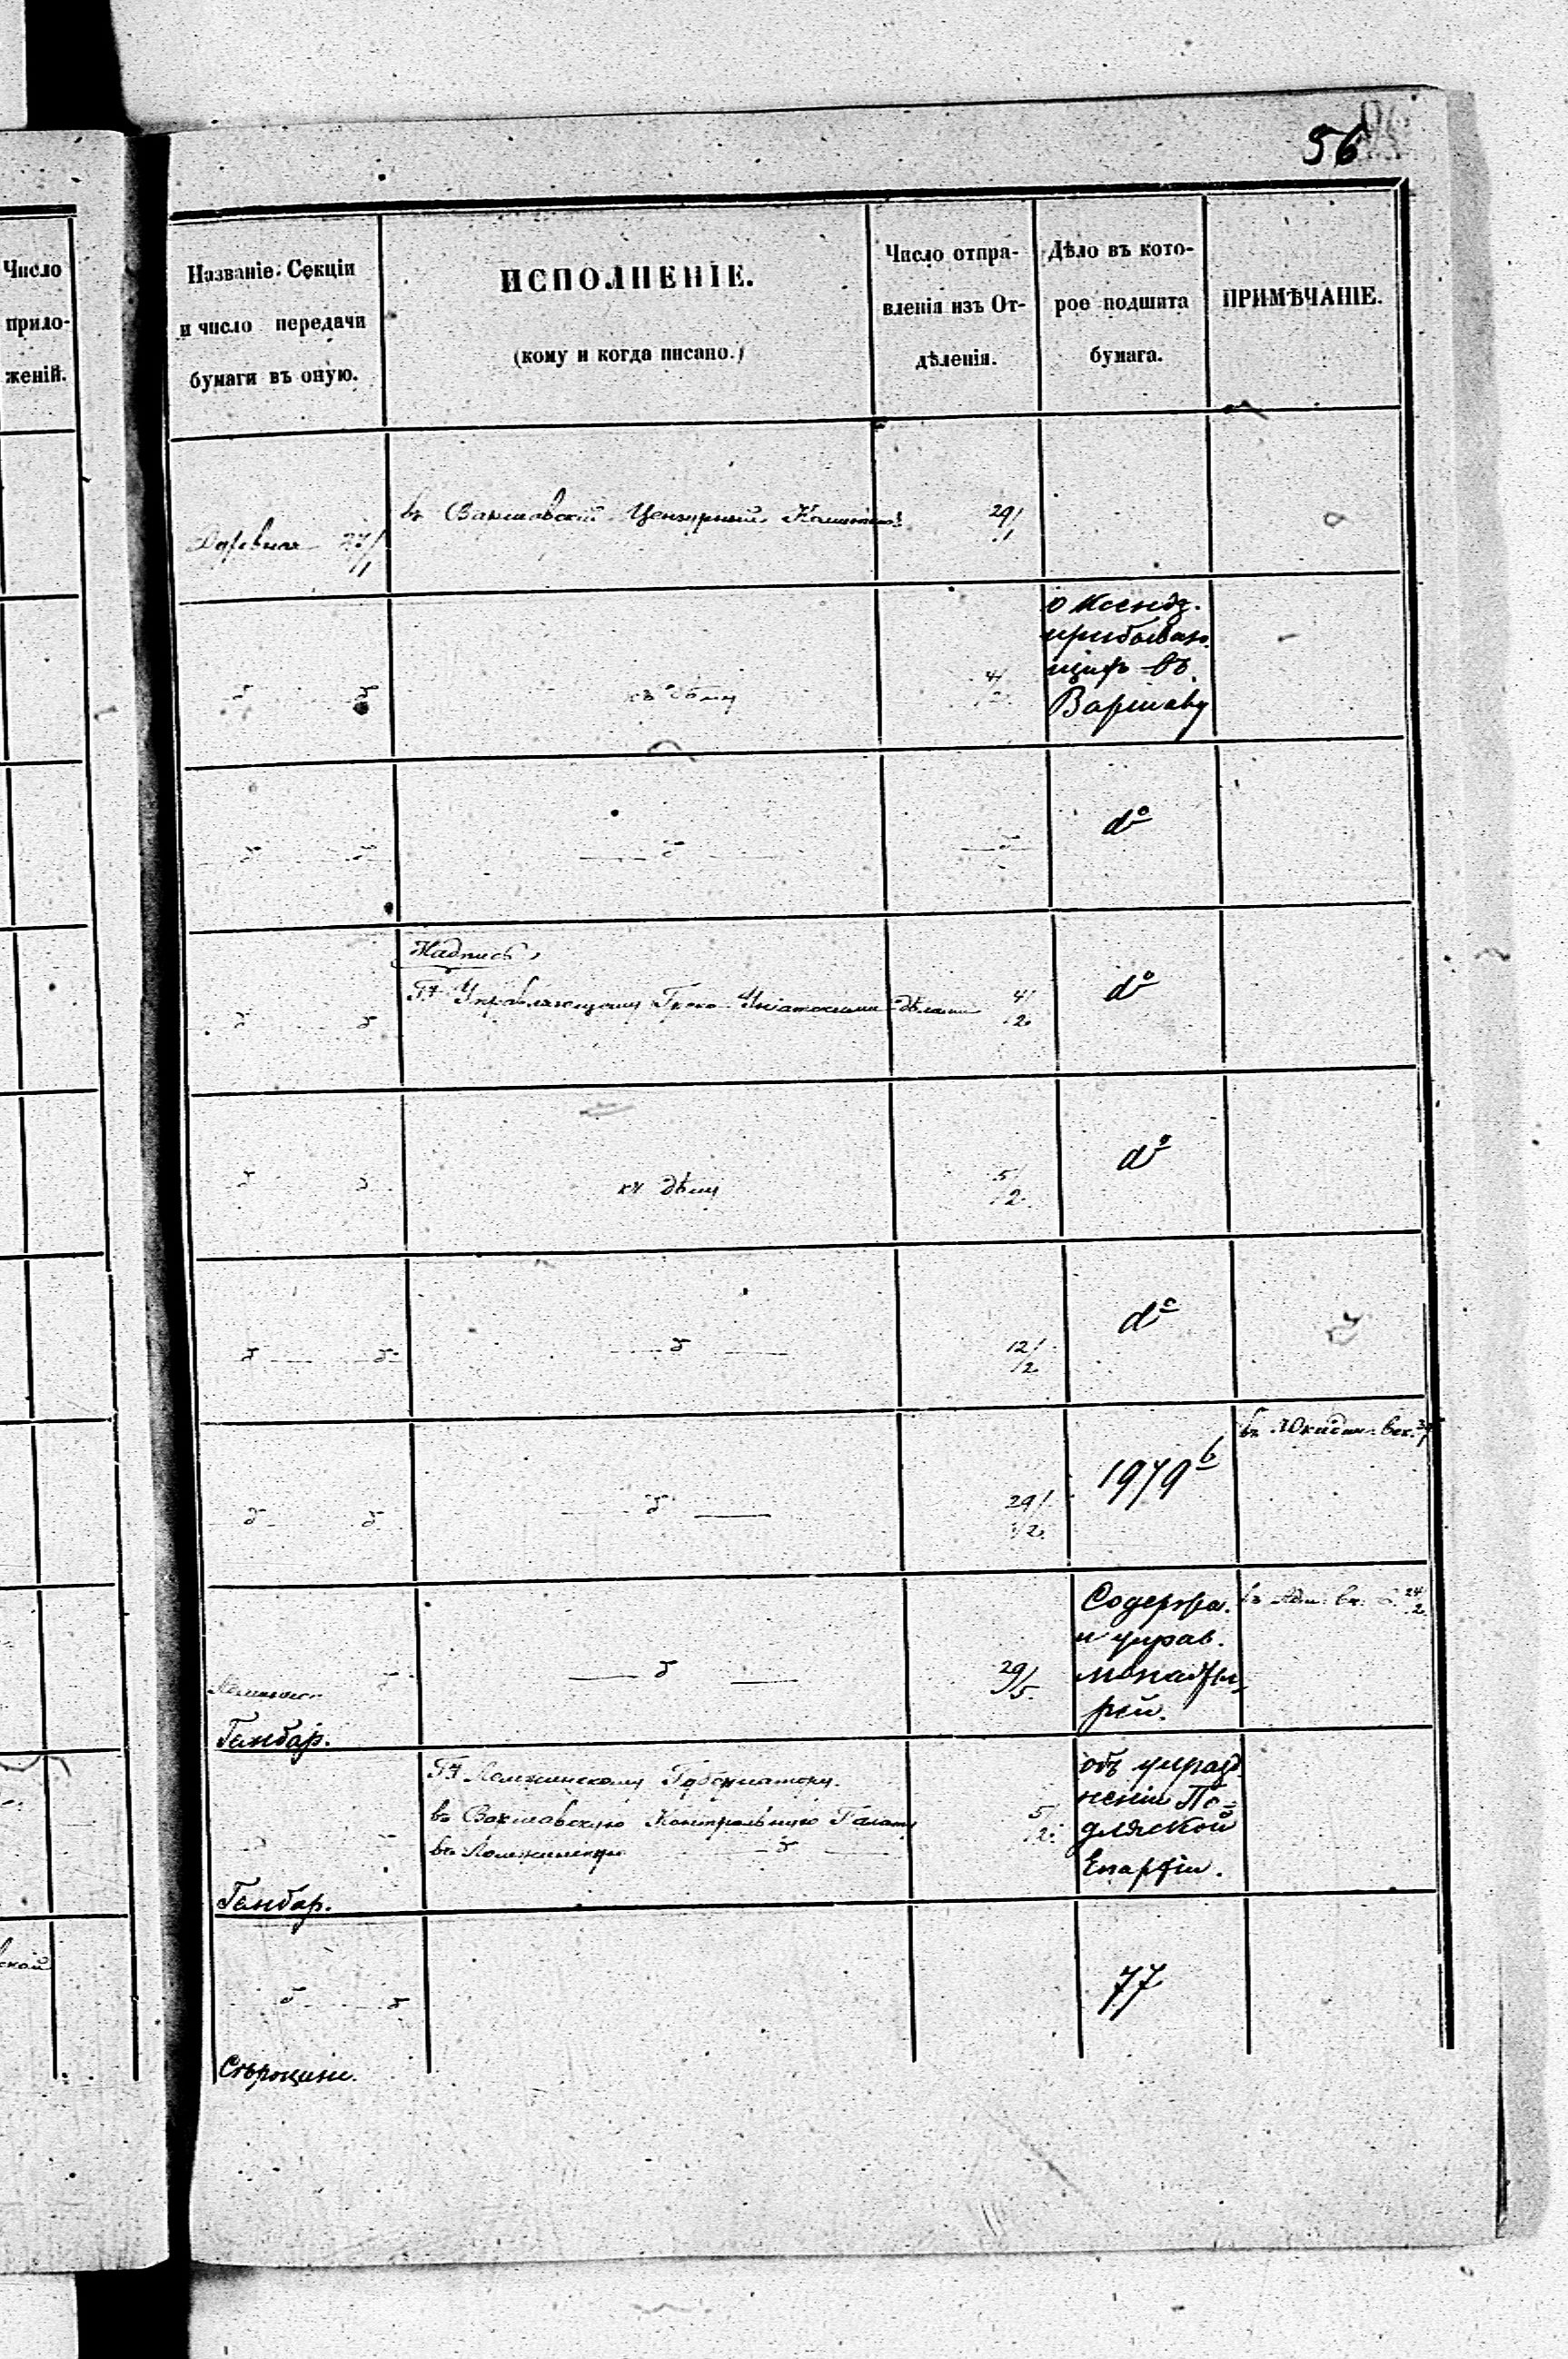 56
Число
прило-
женій.
Названіе Секціи
и число передачи
бумаги въ оную.
ИСПОЛНЕНІЕ.
(кому и когда писано.)
Число отпра-
вленія изъ От-
дѣленія.
Дѣло въ кото-
рое подшита
бумага.
ПРИМѢЧАНІЕ.
27/1
въ Варшавскій Цензурный Комитетъ
29/1
къ дѣлу
4/2
о Ксендз.
прибываю
щихъ въ
Варшаву
dº
Надпись
Гу Управляющему Греко-Уніатскими дѣлами
4/2
dº
къ дѣлу
5/2
dº
12/2
dº
29/2
1979 b
въ Юридич. Сек.
29/5
Содержа.
и управ.
монасты-
рей.
въ Адм. 24/2
Ганбар.
Гу Ломжинскому Губернатору.
въ Варшавскую Контрольную Палату
въ Ломжинскую
5/2
объ упразд
неніи По=
дляской
Епархіи.
Ганбар.
ской
77
Сѣроцин.